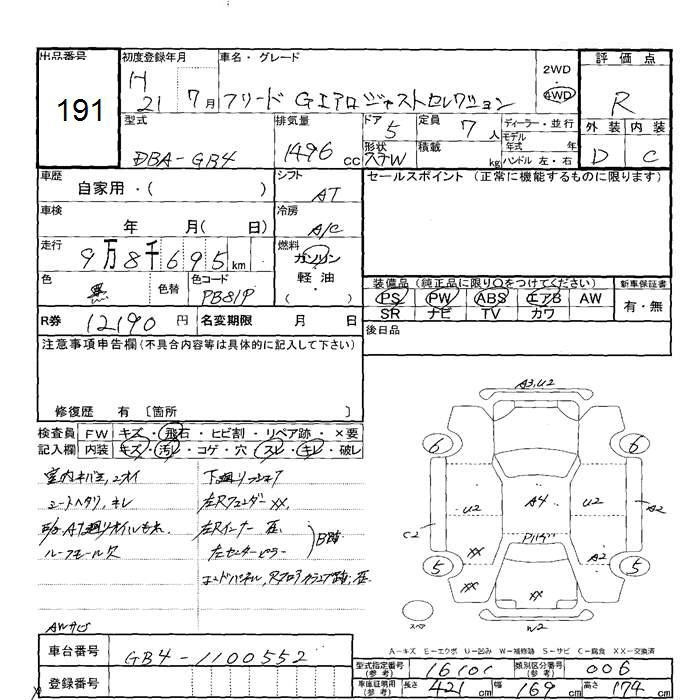 出品番号 初度登録年月 車名・グレード 評価点
191
H 21 7月 フリード Gエアロジャストセレクション
2WD
4WD
R
型式 排気量 ドア 定員 ディーラー・並行 外装 内装
DBA-GB4 1496cc 5 7人
形状 積載 kg
モデル年式 年
ハンドル 左・右
D C
車歴 自家用・( ) シフト AT
セールスポイント (正常に機能するものに限ります)
車検 年 月( 日) 冷房 A/C
走行 9万8千695km 燃料 ガソリン 軽・油 ( )
色 黒 色替 色コード PB81P
装備品 (純正品に限り○をつけてください) 新車保証書
PS PW ABS エアB AW 有・無
SR ナビ TV カワ
R券 12190円 名変期限 月 日
後日品
注意事項申告欄(不具合内容等は具体的に記入して下さい)
修復歴 有 〔箇所 〕
検査員 FW キズ・飛石・ヒビ割・リペア跡・×要
記入欄 内装 キズ・汚レ・コゲ・穴・スレ・キレ・破レ
シートヘタリ、キレ
左Rフェンダー XX、
左Rインナー
左センターピラー
B跡
ルーフモール欠
AWサビ
A3,U2
6 6
U2 A4 U2 A2
C2
XX A2
5 5
XX XX
W2
スペア
A-キズ E-エクボ U-凹み W-補修跡 S-サビ C-腐食 XX-交換済
車台番号 GB4-1100552
登録番号
型式指定番号(参考) 16101 類別区分番号(参考) 006
車庫証明用(参考) 長さ 421cm 幅 169cm 高さ 174cm